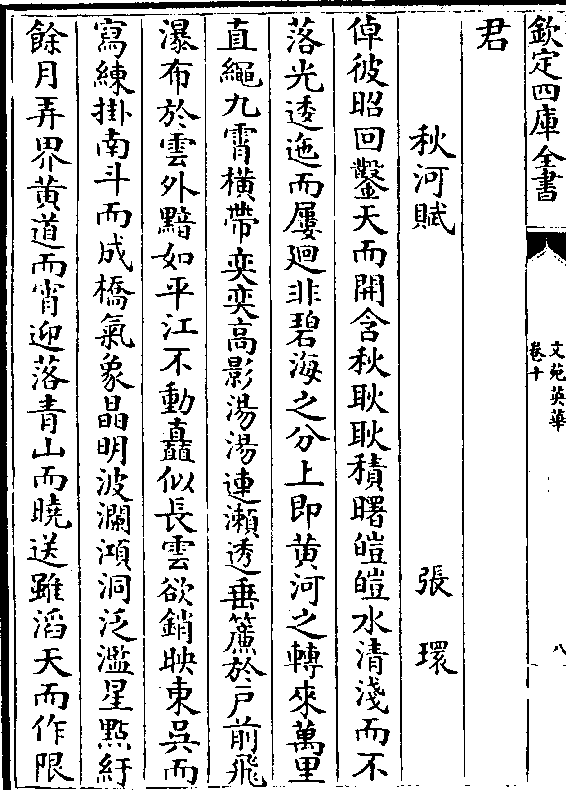 欽定四庫全書
文苑英華
卷十
八
君
秋河賦
張環
倬彼昭回鑿天而開含秋耿耿積曙皚皚水清淺而不
落光逶迤而屢廻非碧海之分上即黄河之轉來萬里
直繩九霄橫帶奕奕高影湯湯連瀨透垂簾於戶前飛
瀑布於雲外黯如平江不動矗似長雲欲銷映東吳而
寫練掛南斗而成橋氣象晶明波瀾澒洞泛濫星㸃紆
餘月弄界黄道而宵迎落青山而曉送雖滔天而作限